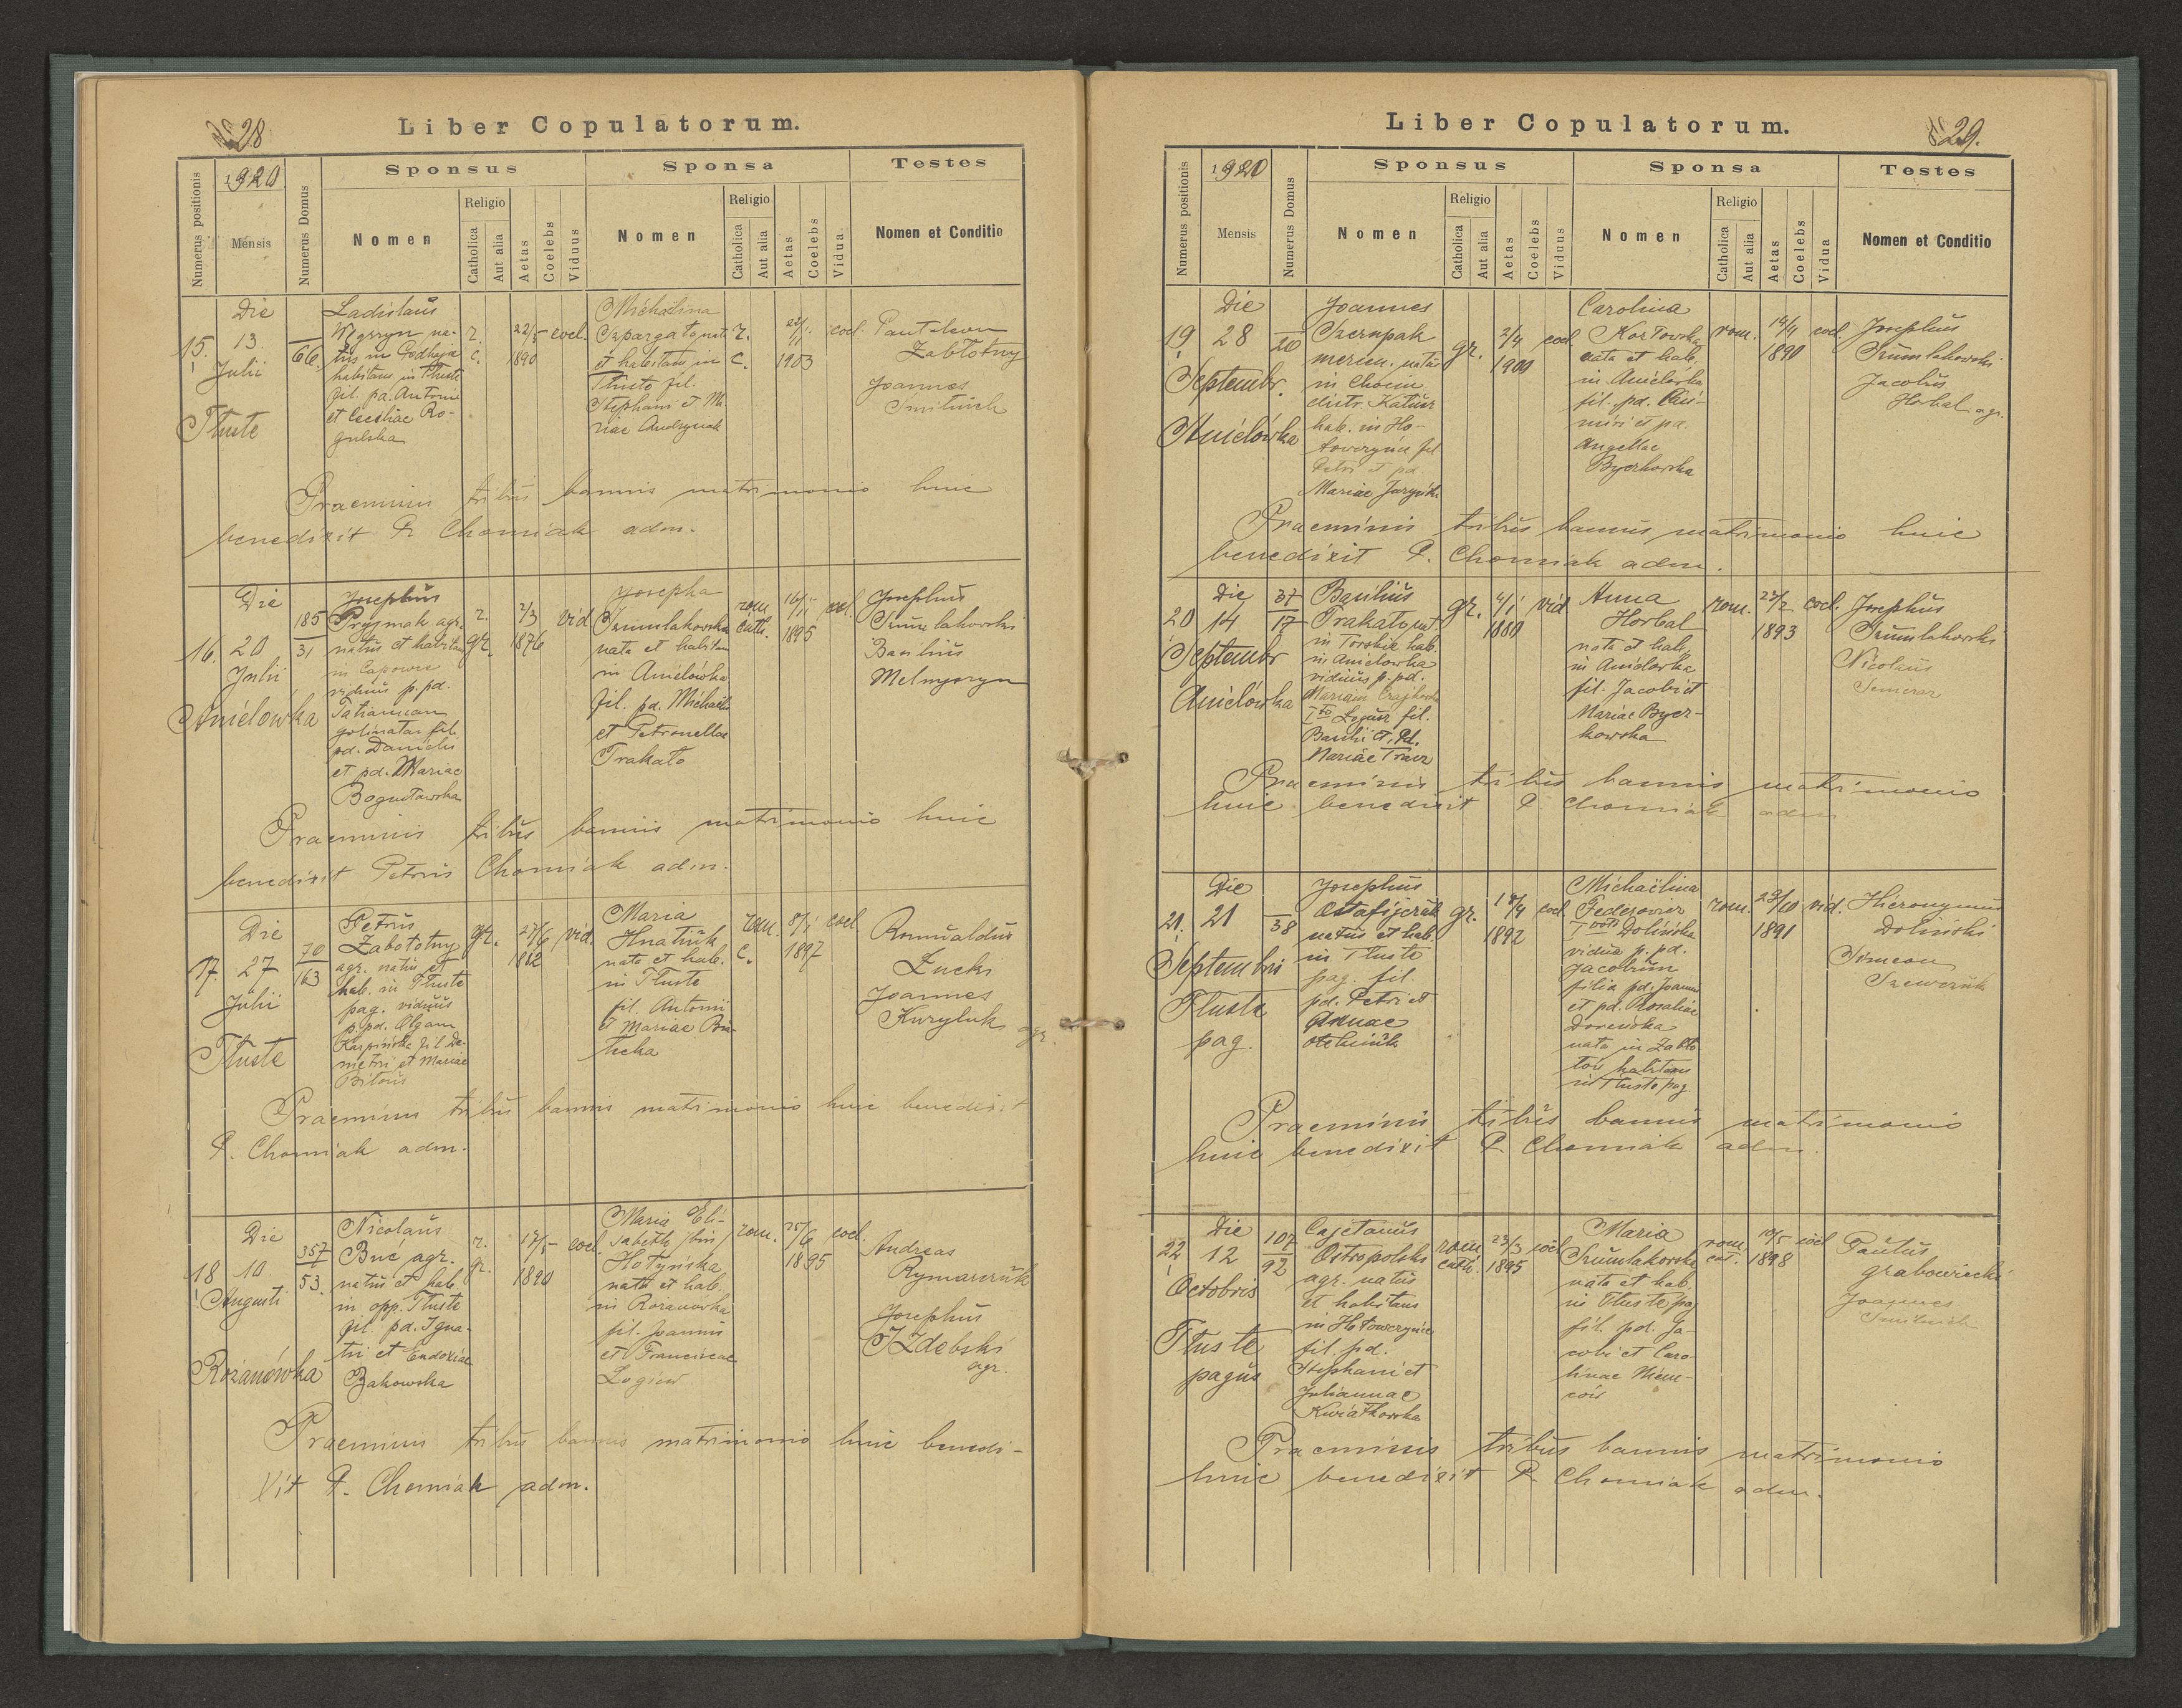 28
Liber Copulatorum.
Numerus positionis
1920
Mensis
Numerus Domus
Sponsus
Nomen
Religio
Catholica
Aut alia
Aetas
Coelebs
Viduus
Sponsa
Nomen
Religio
Catholica
Aut alia
Aetas
Coelebs
Vidua
Testes
Nomen et Conditio
15.
Die
13.
Julii
Tłuste
66.
Ladislaus
na-
tus in
habitans in Tłuste
fil. pd. Antonii
et Ro-
gulska
r.
c.
22/5
1890
coel.
Michalina
nata
et habitans in
Tłuste fil.
Stephani et Ma-
riae
r.
c.
1903
coel.
Pantaleon
Zabłotny
Joannes
Smitiuch
Praemissis tribus bannis matrimonio huic
benedixit P. Chomiak adm.
16.
Die
20
Julii
Anielówka
185
31
Josephus
Prysmak agr.
natus et habitans
in Capowce
viduus p. pd.
Tatianam
fil.
pd. Danielis
et pd. Mariae
Bogusławska
r.
gr.
2/3
1876
vid
Josepha
Szumlakowska
nata et habitans
in Anielówka
fil. pd. Michaelis
et Petronellae
Trakało
rom.
cath.
16/11
1895
coel.
Josephus
Szumlakowski
Basilius
Melnyczyn
Praemissis tribus bannis matrimonio huic
benedixit Petrus Chomiak adm.
17.
Die
27
Julii
Tłuste
70
163
Petrus
Zabototny
agr. natus et
hab. in Tłuste
pag. viduus
p. pd. Olgam
Karpińska fil. De-
metri et Mariae
Biłous
gr.
27/6
1882
vid.
Maria
Hnatiuk
nata et hab.
in Tłuste
fil. Antonii
et Mariae
rom.
c.
8/1
1897
coel.
Romualdus
Zucks
Joannes
Kuryluk agr.
Praemissis tribus bannis matrimonio huic benedixit
P. Chomiak adm.
18
Die
10
Augusti
Rożanówka
357
53.
Nicolaus
Buć agr.
natus et hab.
in opp. Tłuste
fil. pd. Igna-
tii et Eudoxiae
Bakowska
r.
gr.
17/5
1890
coel.
Maria Eli-
sabeth
Hotyńska
nata et hab.
in Rożanówka
fil. Joannis
et Franciscae
Łogiew
rom.
25/6
1895
coel.
Andreas
Rymarczuk
Josephus
IZdebski
agr.
Praemissis tribus bannis matrimonio huic benedi-
xit P. Chomiak adm.
29.
Liber Copulatorum.
Numerus positionis
1920
Mensis
Numerus Domus
Sponsus
Nomen
Religio
Catholica
Aut alia
Aetas
Coelebs
Viduus
Sponsa
Nomen
Religio
Catholica
Aut alia
Aetas
Coelebs
Vidua
Testes
Nomen et Conditio
19
Die
28
Septembr.
Anielówka
20
Joannes
Szerupak
mercen. natus
in Chocin
distr. Kałusz
hab. in Ho-
łowczyńce fil
Petri et pd.
Mariae
gr.
2/4
1900
coel
Carolina
Kozłowska
nata et hab.
in Anielówka
fil. pd. Casi-
miri et pd.
Angelae
Byczkowska
rom.
14/4
1890
coel.
Josephus
Szumlakowski
Jacobus
Horbal agr.
Praemissis tribus bannis matrimonio huic
benedixit P. Chomiak adm.
20
Die
14
Septembr
Anielówka
37
17
Basilius
Trakało nat
in Torskie hab.
in Anielówka
viduus p. pd.
Mariam
fil.
Basilii et pd.
Mariae Tracz
gr.
4/1
1880
vid
Anna
Horbal
nata et hab.
in Anielówka
fil. Jacobi et
Mariae Bycz-
kowska
rom.
23/2
1893
coel.
Josephus
Szumlakowski
Nicolaus
Praemissis tribus bannis matrimonio
huic benedixit P. Chomiak adm
21.
Die
21
Septembris
Tłuste
pag.
38
Josephus
Ostafijczuk
natus et hab.
in Tłuste
pag. fil.
pd. Petri et
Annae
gr.
18/4
1892
coel
Michaëlina
Federowicz
Dolińska
vidua p. pd.
Jacobum
filia pd. Joannis
et pd. Rosaliae
nata in
habitans
in Tłuste pag.
rom.
23/10
1891
vid.
Hieronymus
Doliński
Simeon
Szewczuk
Praemissis tribus bannis matrimonio
huic benedixit P. Chomiak adm.
22
Die
12
Octobris
Tłuste
pagus
107
92
Cajetanus
Ostropolski
agr. natus
et habitans
in Hołowczyńce
fil. pd.
Stephani et
Juliannae
Kwiatkowska
rom
cath.
23/3
1895
coel
Maria
Szumlakowska
nata et hab.
in Tłuste pag
fil. pd. Ja-
cobi et Caro-
linae Niem-
ców
rom
cat.
10/5
1898
coel
Paulus
Grabowiecki
Joannes
Smitiuch
Praemissis tribus bannis matrimonio
huic benedixit P. Chomiak adm.